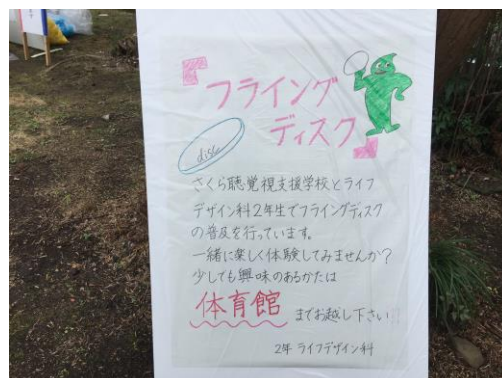 『フライング
ディスク』
disc
さくら聴覚視支援学校とライフ
デザイン科2年生でフライングディスク
の普及を行っています。
一緒に楽しく体験してみませんか?
少しでも興味のあるかたは
体育館 までお越し下さい!!
2年 ライフデザイン科